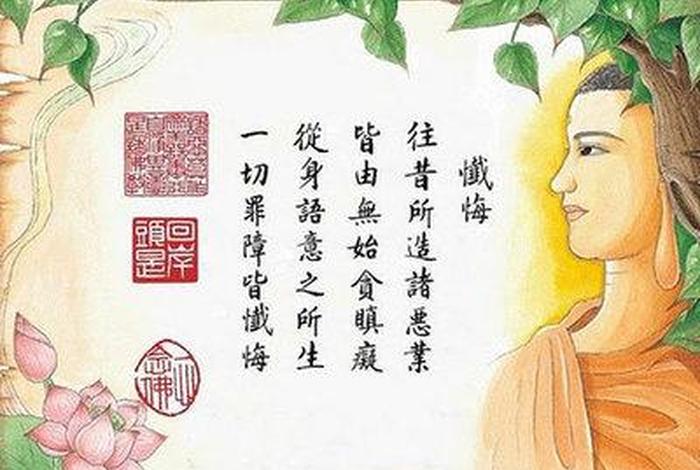 懺悔
往昔所造諸悪業
皆由無始貪瞋癡
從身語意之所生
一切罪障皆懺悔
回頭是岸
一心念佛